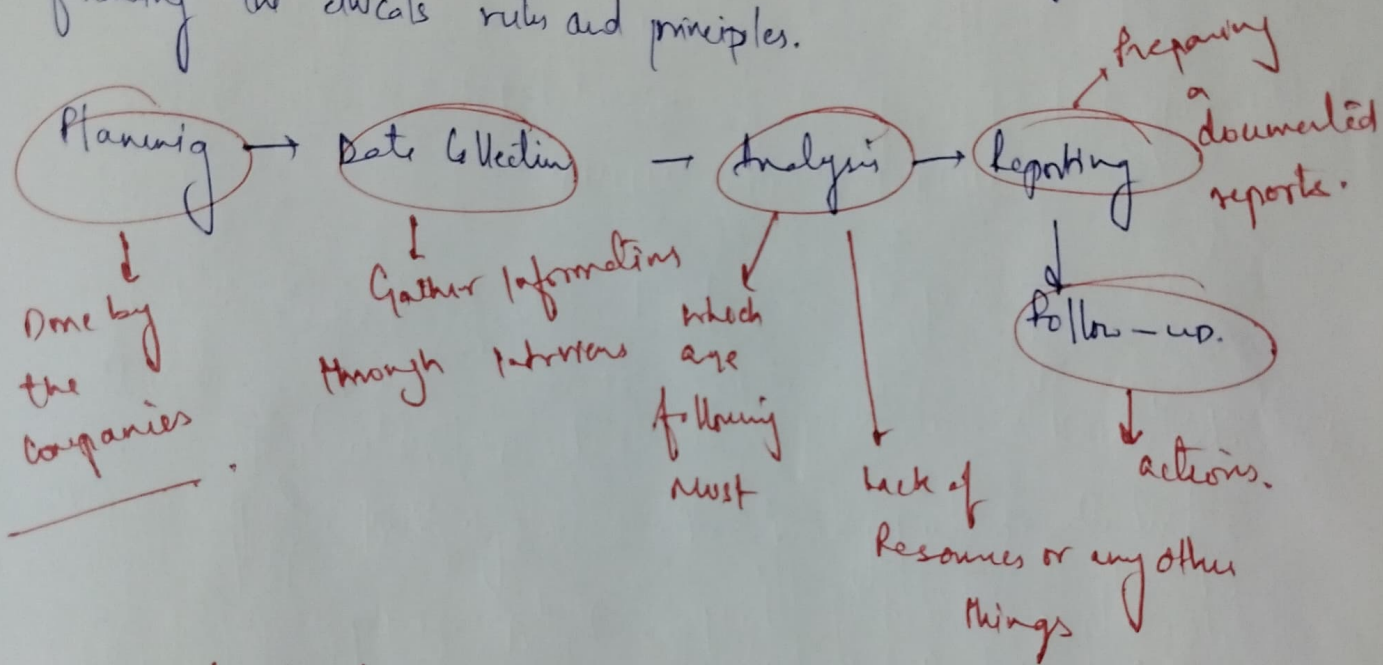 rules and principles.
Planning → Data Collection → Analysis → Reporting
Preparing
a
documented
reports.
Done by
the
Companies
Gather Informations
through Intrviews
which
are
following
Most
Lack of
Resources or any other
things
Follow-up.
actions.